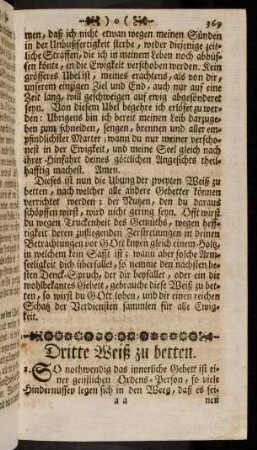 )o( 369
men, daß ich nicht etwan wegen meinen Sünden
in der Unbußfertigkeit sterbe, weder diejenige zeit-
liche Straffen, die ich in meinem Leben noch abbüs-
sen könte, en die Ewigkeit verschoben werden. Kein
grösseres Ubel ist, meines erachtens, als von dir,
unserem einzigen Ziel und End, auch nur auf eine
Zeit lang, will geschweigen auf ewig abgesönderet
seyn. Von diesem Ubel begehre ich erlöset zu wer-
den: Ubrigens bin ich bereit meinen Leib darzuge-
ben zum schneiden, sengen, brennen und aller em-
pfindlichster Marter; wann du nur meiner verscho-
nest in der Ewigkeit, und meine Seel gleich nach
ihrer Hinfahrt deines göttlichen Angesichts theil-
hafftig machest. Amen.
Dieses ist nun die Ubung der zweyten Weiß zu
betten, nach welcher alle andere Gebetter können
verrichtet werden: der Nutzen, den du daraus
schöpffen wirst, wird nicht gering seyn. Offt wirst
du wegen Truckenheit des Gemüths, wegen heff-
tigkeit deren zufliegenden Zerstreuungen in deinen
Betrachtungen vor GOtt knyen gleich einem Holtz,
in welchem kein Safft ist; wann aber solche Arm-
seeligkeit dich überfallet, so nemme den nächsten be-
sten Denck-Spruch, der dir beyfallet, oder ein dir
wohlbekantes Gebett, gebrauche diese Weiß zu bet-
ten, so wirst du GOtt loben, und dir einen reichen
Schatz der Verdiensten sammlen für alle Ewig-
keit.
Dritte Weiß zu betten.
1. SO nothwendig das innerliche Gebett ist ei-
ner geistlichen Ordens-Person, so viele
Hindernussen legen sich in den Weeg, daß es sei-
a a nen